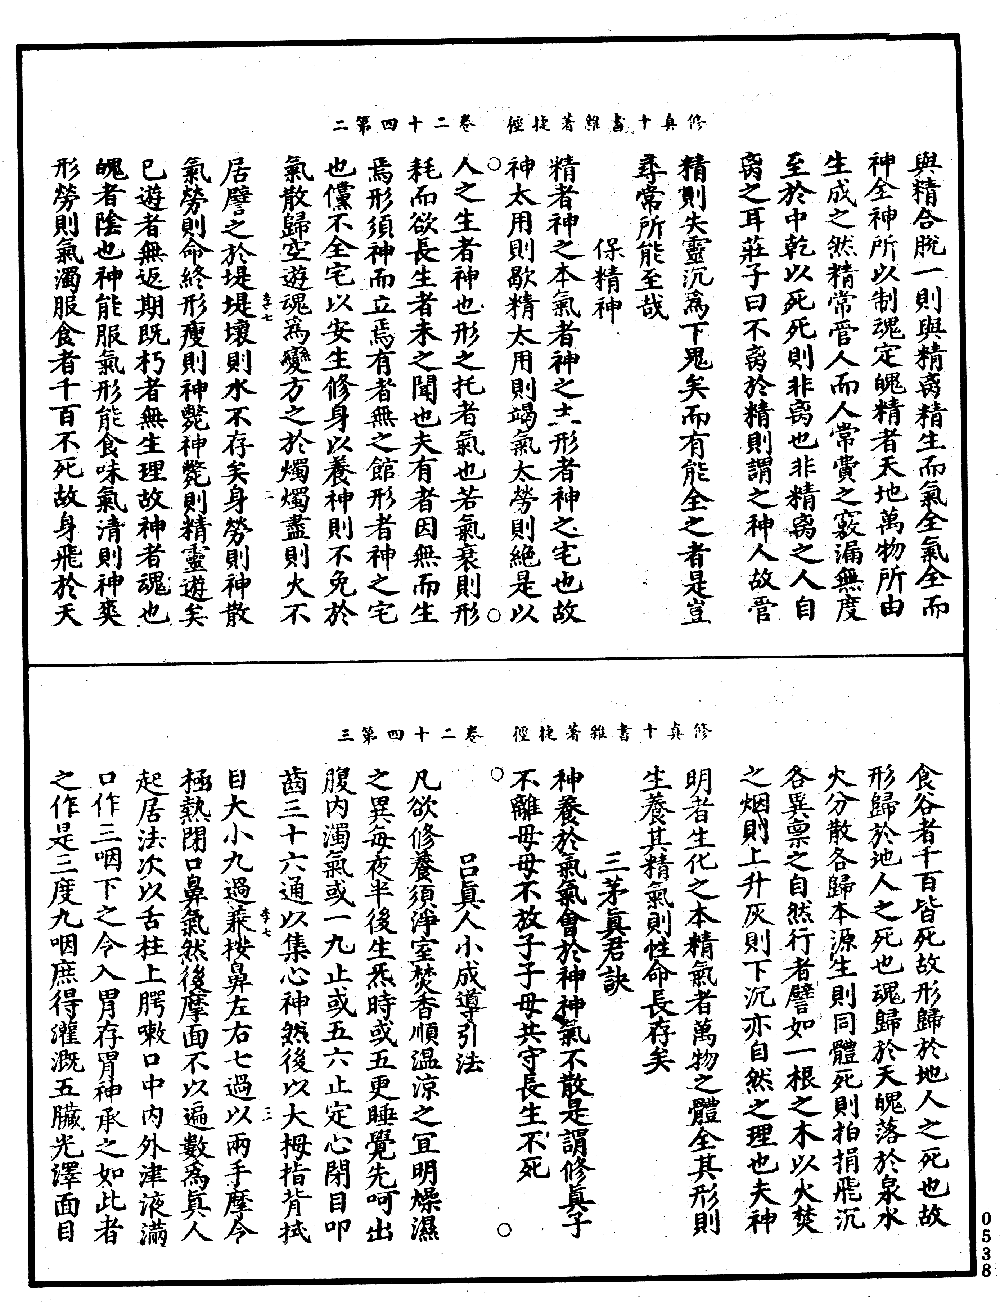 修真十書雜著捷徑　卷二十四第二
與精合脫一則與精离精生而氣全氣全而
神全神所以制魂定魄精者天地萬物所由
生成之然精常管人而人常費之竅漏無度
至於中乾以死死則非离也非精离之人自
离之耳莊子曰不离於精則謂之神人故管
精則失靈沉為下鬼矣而有能全之者是豈
尋常所能至哉
保精神
精者神之本氣者神之主形者神之宅也故
神太用則歇精太用則竭氣太勞則絕是以
人之生者神也形之托者氣也若氣衰則形
耗而欲長生者未之聞也夫有者因無而生
焉形須神而立焉有者無之館形者神之宅
也儻不全宅以安生修身以養神則不免於
氣散歸空遊魂為變方之於燭燭盡則火不
居譬之於堤堤壞則水不存矣身勞則神散
氣勞則命終形瘦則神斃神斃則精靈遊矣
已遊者無返期既朽者無生理故神者魂也
魄者陰也神能服氣形能食味氣清則神爽
形勞則氣濁服食者千百不死故身飛於天
修真十書雜著捷徑　卷二十四第三
食谷者千百皆死故形歸於地人之死也故
形歸於地人之死也魂歸於天魄落於泉水
火分散各歸本源生則同體死則拍捐飛沉
各異禀之自然行者譬如一根之木以火焚
之烟則上升灰則下沉亦自然之理也夫神
明者生化之本精氣者萬物之體全其形則
生養其精氣則性命長存矣
三茅真君訣
神養於氣氣會於神神氣不散是謂修真子
不離母母不放子子母共守長生不死
呂真人小成導引法
凡欲修養須淨室焚香順溫凉之宜明燥濕
之異每夜半後生炁時或五更睡覺先呵出
腹内濁氣或一九止或五六止定心閉目叩
齒三十六通以集心神然後以大拇指背拭
目大小九過兼按鼻左右七過以兩手摩令
極熱閉口鼻氣然後摩面不以遍數為真人
起居法次以舌柱上腭嗽口中内外津液滿
口作三咽下之令入胃存胃神承之如此者
之作是三度九咽庶得灌溉五臟光澤面目
0538